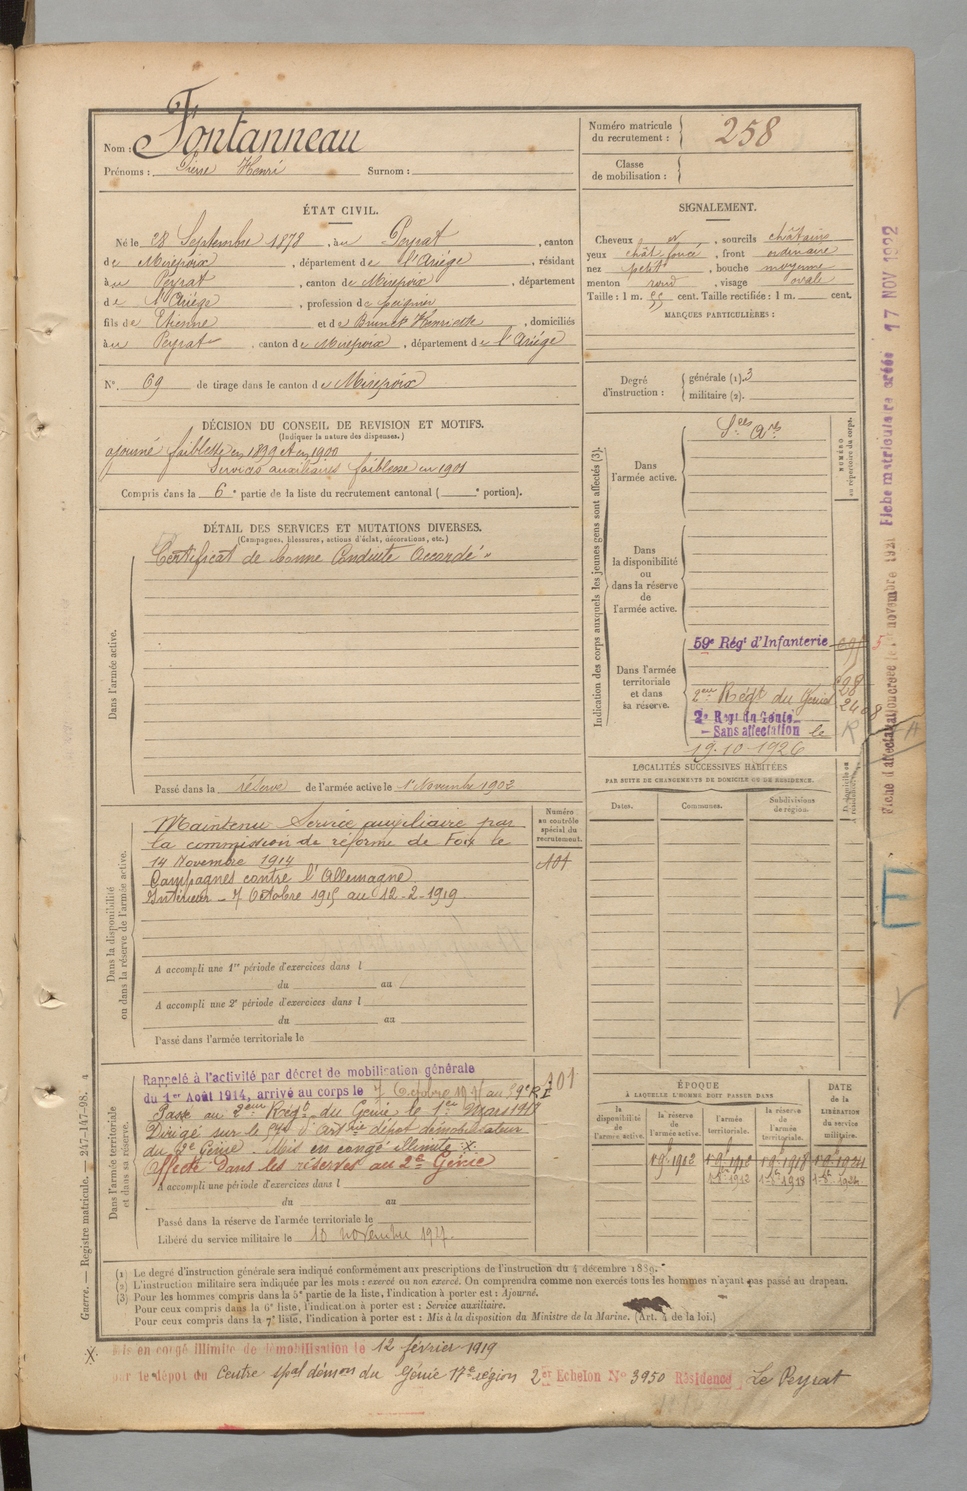 Nom : Fontanneau
Prénoms : Pierre Henri Surnom :
Numéro matricule du recrutement : 258
Classe de mobilisation :
ÉTAT CIVIL.
Né le 28 Septembre 1878, à u Peyrat, canton
de Mirepoix, département de l'Ariège, résidant
à u Peyrat, canton de Mirepoix, département
de l'Ariège, profession de peignier
fils de Etienne et de Brunet Henriette, domiciliés
à u Peyrat, canton de Mirepoix, département de l'Ariége
N° 69 de tirage dans le canton de Mirepoix
SIGNALEMENT.
Cheveux et, sourcils châtains
yeux chât foncé, front ordinaire
nez petit, bouche moyenne
menton rond, visage ovale
Taille : 1 m. 55 cent. Taille rectifiée : 1 m. cent.
MARQUES PARTICULIÈRES :
Degré d'instruction : générale (1). 3
militaire (2).
DÉCISION DU CONSEIL DE REVISION ET MOTIFS.
(Indiquer la nature des dispenses.)
ajourné faiblesse en 1899 et en 1900
Services auxiliaires faiblesse en 1901
Compris dans la 6e partie de la liste du recrutement cantonal ( e portion).
DÉTAIL DES SERVICES ET MUTATIONS DIVERSES.
(Campagnes, blessures, actions d'éclat, décorations, etc.)
Dans l'armée active.
Certificat de bonne Conduite Accordé
Passé dans la réserve de l'armée active le 1 Novembre 1902
Indication des corps auxquels les jeunes gens sont affectés (3).
NUMÉRO au répertoire du corps.
Dans l'armée active.
Dans la disponibilité ou dans la réserve de l'armée active.
Dans l'armée territoriale et dans sa réserve.
59e Régt d'Infanterie
2eme Régt du Génie
2e Régt du Génie
- Sans affectation le
19.10-1926
LOCALITÉS SUCCESSIVES HABITÉES
PAR SUITE DE CHANGEMENTS DE DOMICILE OU DE RÉSIDENCE.
Dates. Communes. Subdivisions de région.
Dans la disponibilité ou dans la réserve de l'armée active.
Numéro au contrôle spécial du recrutement.
Maintenu Service auxiliaire par
la commission de réforme de Foix le
14 Novembre 1914
Campagnes contre l'Allemagne
Intérieur - 7 Octobre 1915 au 12-2-1919
101
A accompli une 1re période d'exercices dans l
du au
A accompli une 2e période d'exercices dans l
du au
Passé dans l'armée territoriale le
Dans l'armée territoriale et dans sa réserve.
Rappelé à l'activité par décret de mobilisation générale
du 1er Août 1914, arrivé au corps le 7 Octobre 1915 au 59e RI
101
Passé au 2eme Régt du Génie le 1er Mars 1918
Dirigé sur le dépôt démobilisateur
du 2e Génie. Mis en congé illimité X.
Affecté dans les réserves au 2e Génie
A accompli une période d'exercices dans l
du au
Passé dans la réserve de l'armée territoriale le
Libéré du service militaire le 10 novembre 1927.
ÉPOQUE
À LAQUELLE L'HOMME DOIT PASSER DANS
DATE de la LIBÉRATION du service militaire.
la disponibilité de l'armée active.
la réserve de l'armée active.
l'armée territoriale.
la réserve de l'armée territoriale.
(1) Le degré d'instruction générale sera indiqué conformément aux prescriptions de l'instruction du 4 décembre 1889.
(2) L'instruction militaire sera indiquée par les mots : exercé ou non exercé. On comprendra comme non exercés tous les hommes n'ayant pas passé au drapeau.
(3) Pour les hommes compris dans la 5e partie de la liste, l'indication à porter est : Ajourné.
Pour ceux compris dans la 6e liste, l'indication à porter est : Service auxiliaire.
Pour ceux compris dans la 7e liste, l'indication à porter est : Mis à la disposition du Ministre de la Marine. (Art. 4 de la loi.)
X. Mis en congé illimité de démobilisation le 12 février 1919
par le dépôt du Centre spal démon du Génie 17e région 2er Echelon No 3950 Résidence Le Peyrat
Guerre. — Registre matricule. — 247-147-98.
Fiche matriculaire créée 17 NOV 1922